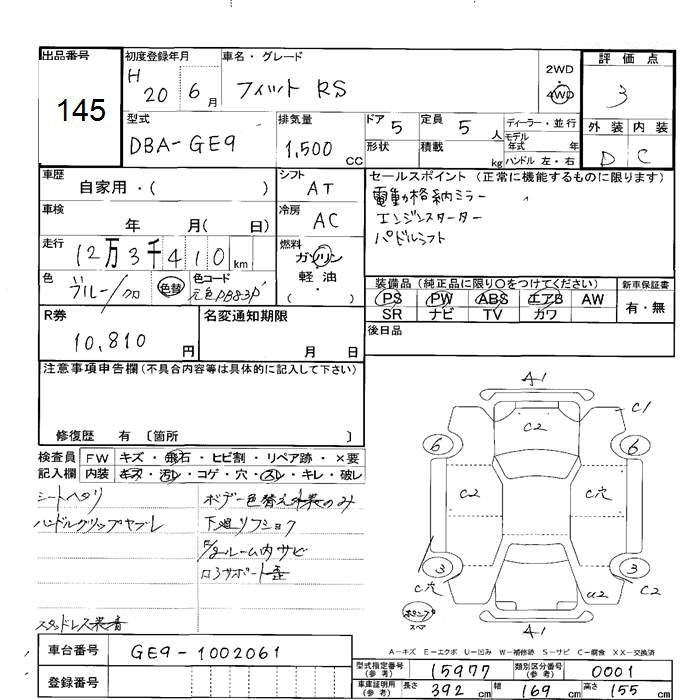 出品番号
145
初度登録年月
H 20 6月
車名・グレード
フィット RS
2WD
・
4WD
評価点
3
型式
DBA-GE9
排気量
1,500 CC
ドア 5
形状
定員 5 人
積載 kg
ディーラー・並行
モデル
年式 年
ハンドル 左・右
外装 内装
D C
車歴
自家用・( )
シフト
AT
セールスポイント (正常に機能するものに限ります)
電動格納ミラー
エンジンスターター
パドルシフト
車検
年 月( 日)
冷房
AC
走行
12万3千410km
燃料
ガソリン
軽油
・( )
色
ブルー/クロ
色替
色コード
元色PB83P
装備品 (純正品に限り○をつけてください)
PS PW ABS エアB AW
SR ナビ TV カワ
新車保証書
有・無
R券
10,810円
名変通知期限
月 日
後日品
注意事項申告欄 (不具合内容等は具体的に記入して下さい)
修復歴 有 〔箇所 〕
検査員
記入欄
FW キズ・飛石・ヒビ割・リペア跡・×要
内装 キズ・汚レ・コゲ・穴・スレ・キレ・破レ
シートヘタリ
ハンドルグリップヤブレ
スタッドレス装着
ボデー色替え外装のみ
下廻リフショク
ルーム内サビ
サポート歪
A-1
C1
C2
6
6
C2
C穴
3
3
C穴
U2
C2
スペア
A-1
A-キズ E-エクボ U-凹み W-補修跡 S-サビ C-腐食 XX-交換済
車台番号
GE9-1002061
登録番号
型式指定番号
(参考)
15977
類別区分番号
(参考)
0001
車庫証明用
(参考)
長さ 392 cm 幅 169 cm 高さ 155 cm